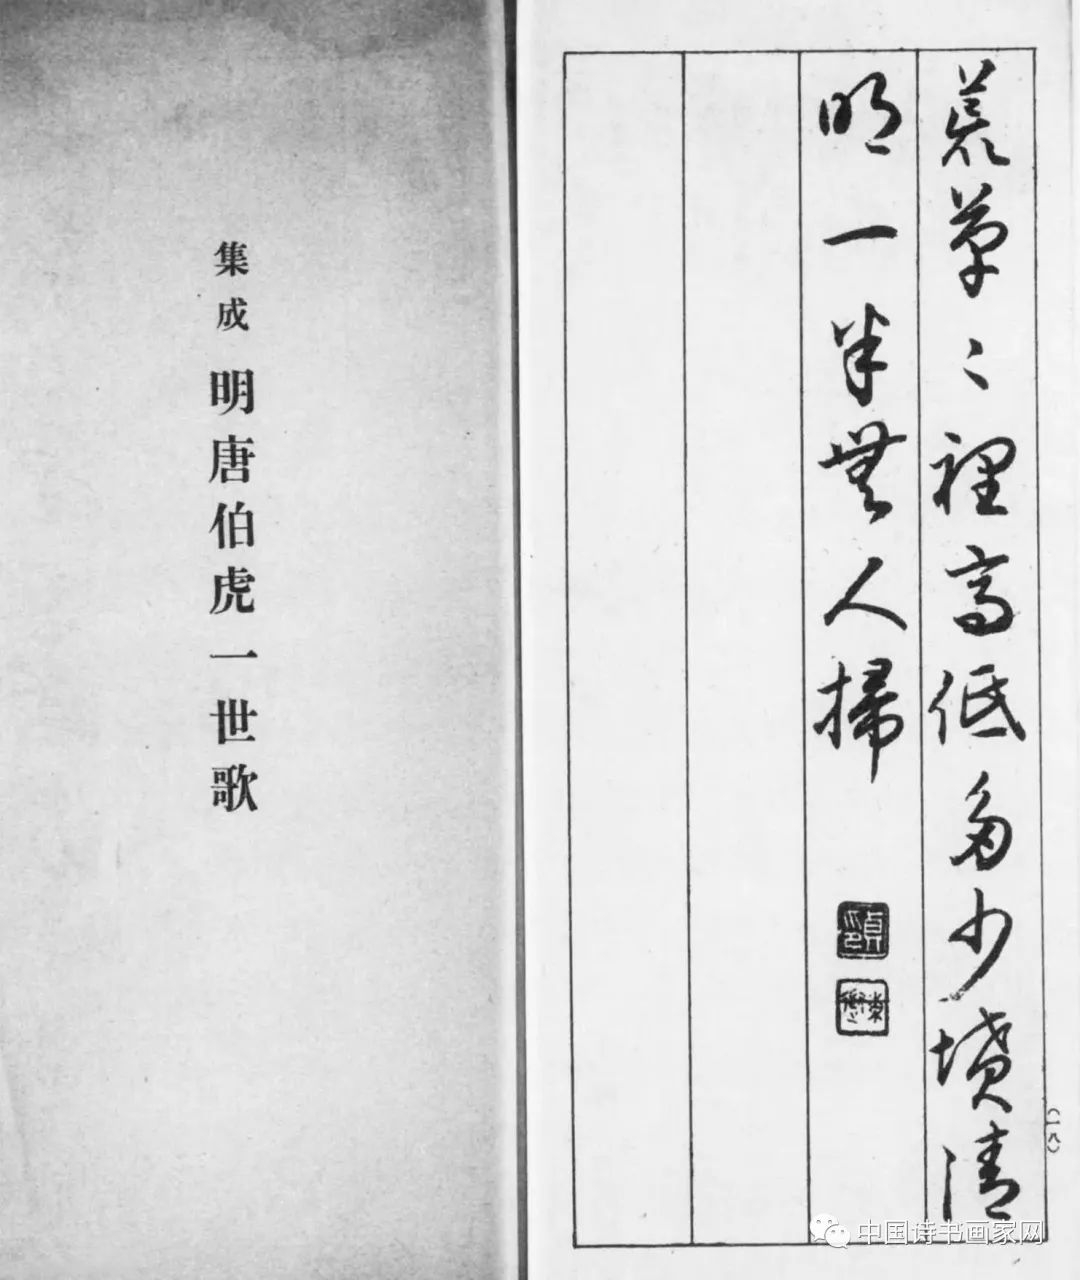 荒草〻裡高低多少墳清
明一半無人掃
(一八)
集成 明唐伯虎一世歌
中国诗书画家网